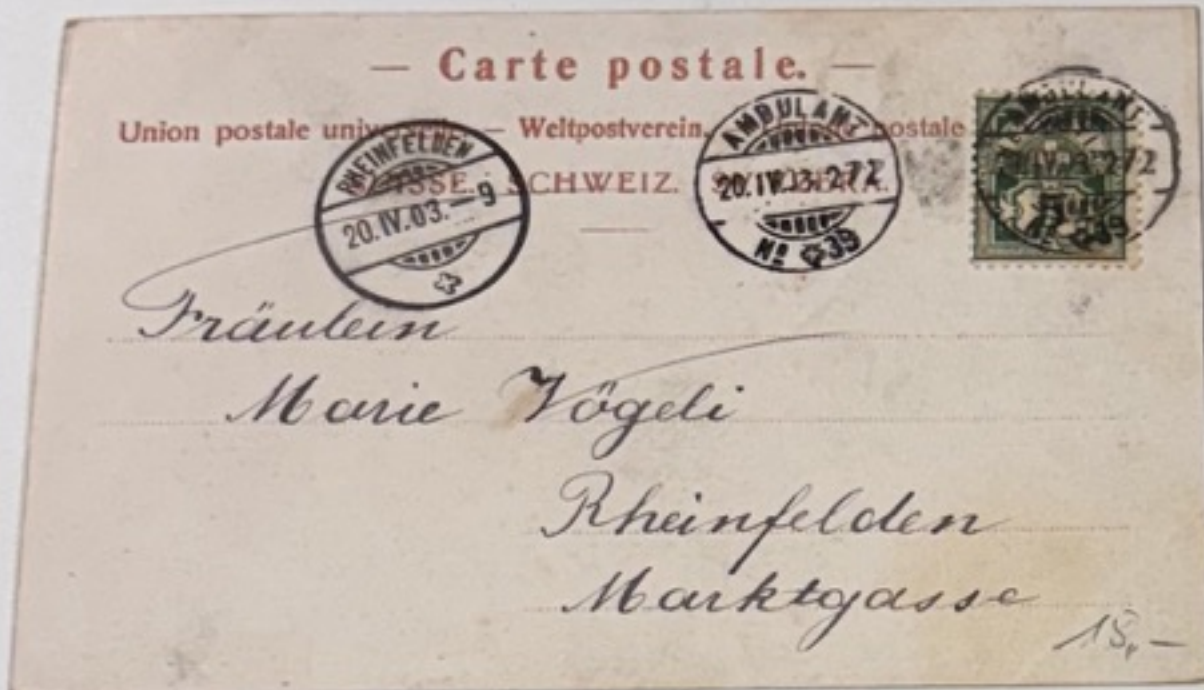 — Carte postale. —
Union postale — Weltpostverein. postale
SCHWEIZ.
RHEINFELDEN
20.IV.03.–9
AMBULANT
20.IV.03. 272
No 39
AMBULANT
IV.03. 272
No 39
Fräulein
Marie Vögeli
Rheinfelden
Marktgasse
15,–